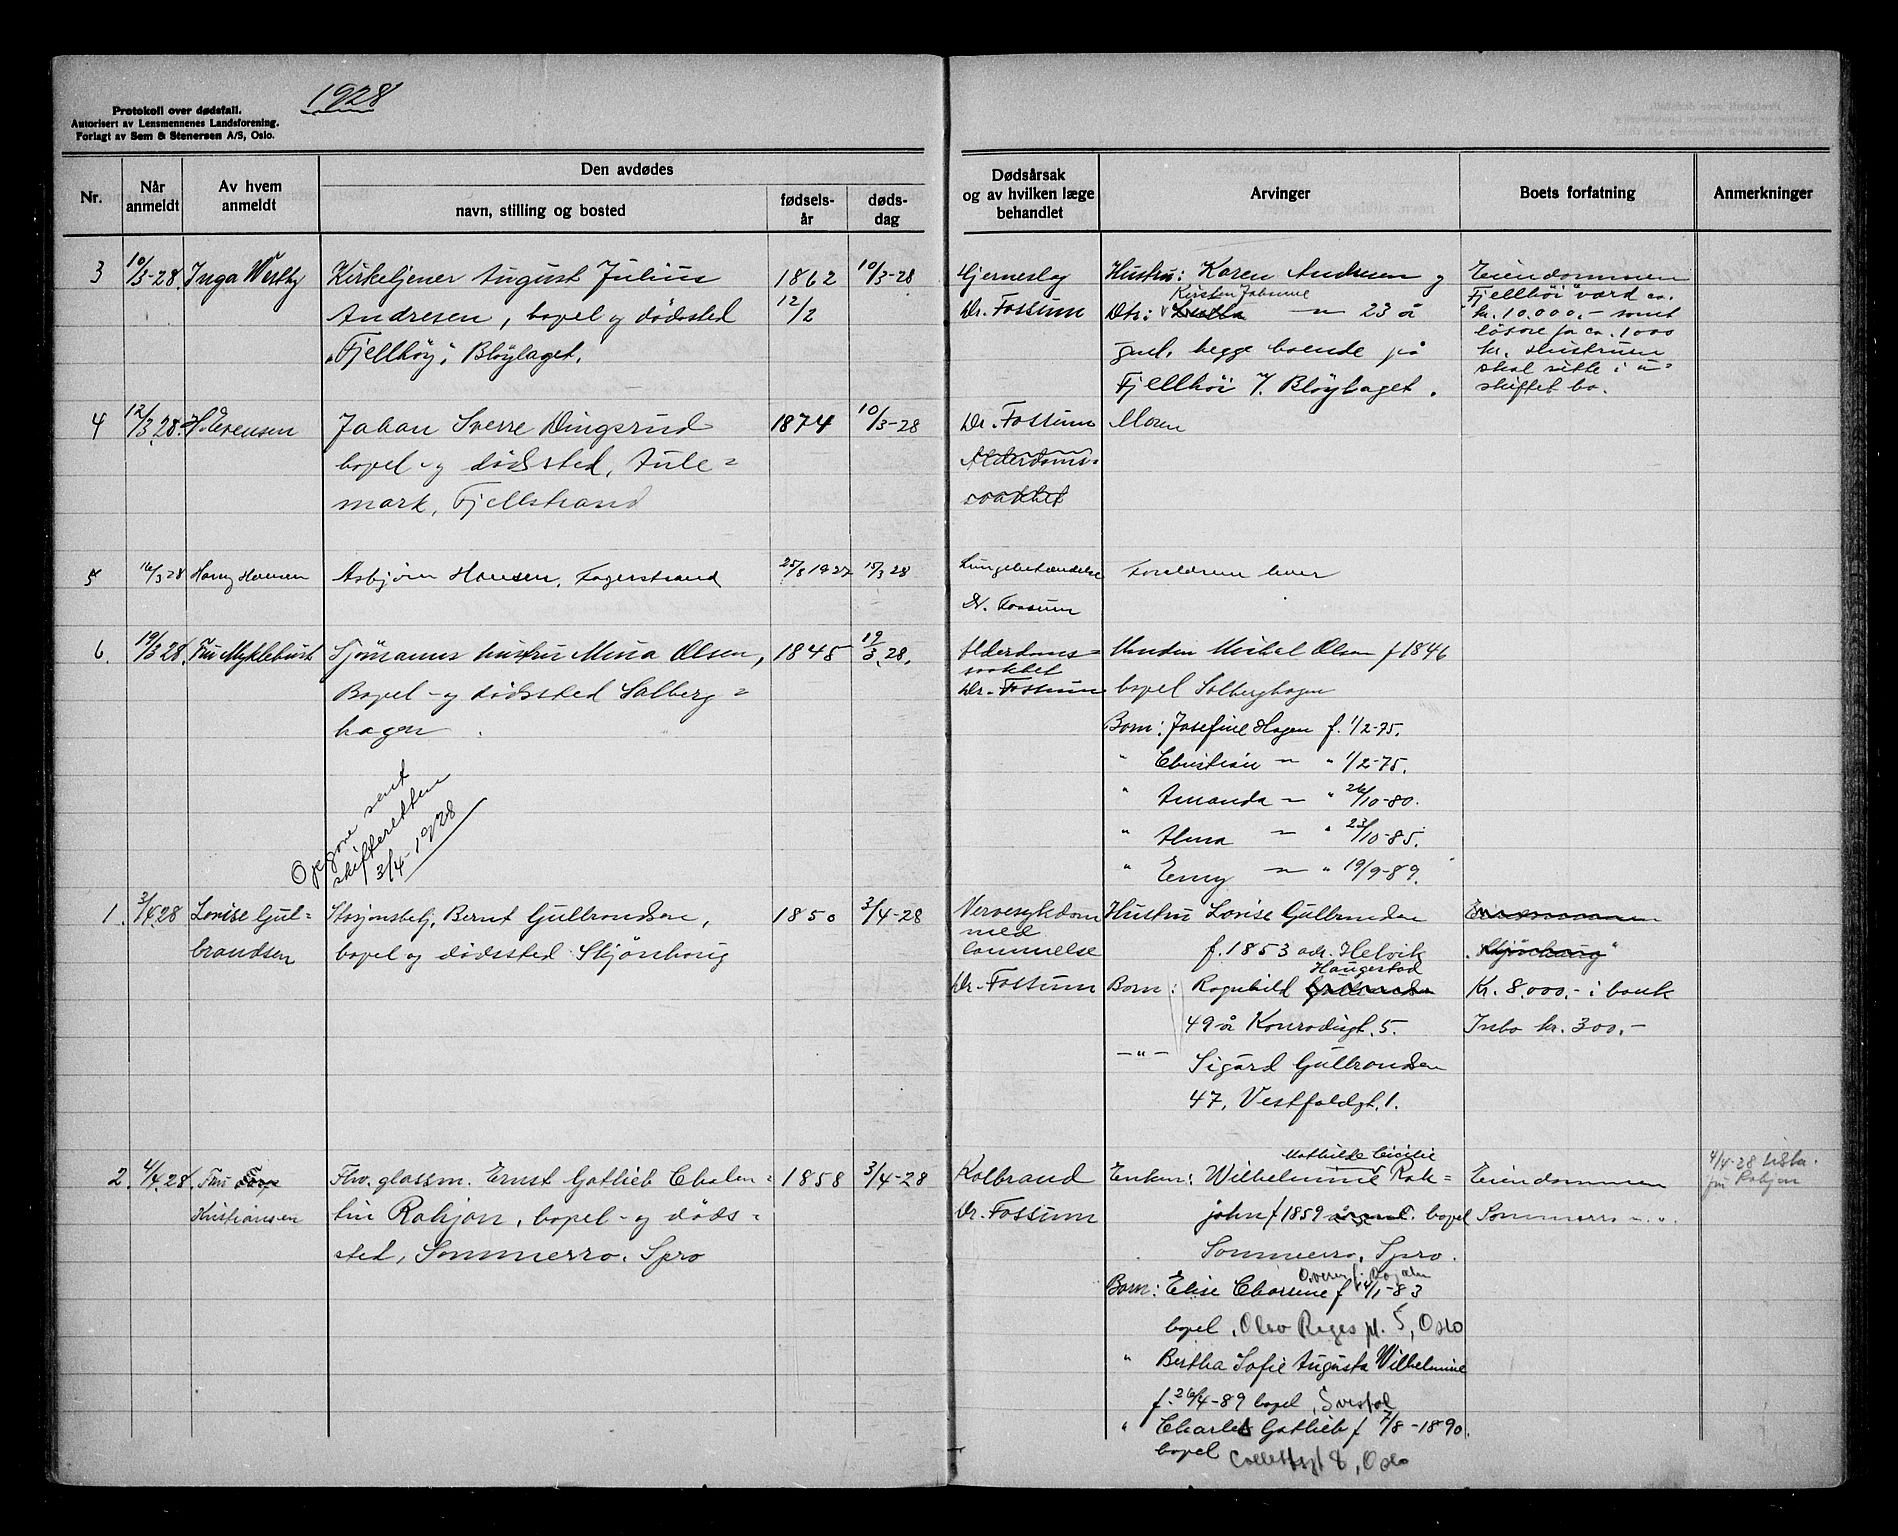 1928
Protokoll over dødsfall.
Autorisert av Lensmennenes Landsforening.
Forlagt av Sem & Stenersen A/S, Oslo.
Nr.
Når anmeldt
Av hvem anmeldt
Den avdødes
navn, stilling og bosted
fødsels-år
døds-dag
Dødsårsak og av hvilken læge behandlet
Arvinger
Boets forfatning
Anmerkninger
3 10/3-28. Inga Westby Kirketjener August Julius 1862 10/3-28 Hjerneslag Hustru: Karen Andresen og Eiendommen
Kirsten Johanne
Andresen, bopel og dødssted 12/2 Dr. Fossum Dtr: — " — 23 år "Fjellhöi" værd ca.
kr. 10.000.- samt
"Fjellhöy", Blöylaget. gml. begge boende på lösöre for ca. 1000
kr. Hustruen
Fjellhöi i/ Blöylaget. skal sitte i u=
skiftet bo.
4 12/3 28. H. Evensen Johan Sverre Dingsrud 1874 10/3-28 Dr. Fossum Moren
bopel- og dödssted, Aule= Alderdoms=
mark, Fjellstrand svakhet
5 16/3 28 Harry Hansen Asbjörn Hansen, Fagerstrand 25/8 1927 15/3 28 Lungebetændelse Foreldrene lever
Dr. Fossum
6. 19/3 28. Fru Myklebust Sjömanns hustru Mina Olsen, 1845 19/3 28. Alderdoms= Manden Mickal Olsen f 1846
svakhet
Bopel- og dödssted Solberg= Dr. Fossum bopel Solberghagen
hagen Barn: Josefine Hagen f. 1/2-75.
" Christian — " — " 1/2-75.
" Amanda — " — " 26/10-80.
" Alma — " — " 23/10-85.
" Enny — " — " 19/9-89.
Opgave sent
skifteretten
3/4-1928
1. 3/4 28 Lovise Gul= Stasjonsbetj. Bernt Gulbrandsen, 1850 3/4-28 Nervesykdom Hustru Lovise Gulbrandsen Eiendommen
med
brandsen bopel og dödssted Skjönhaug lammelse f. 1853 adr. Helvik "Skjönhaug"
Haugestad
Dr. Fossum Barn: Ragnhild Gulbrandsen Kr. 8.000.- i bank
49 år Konradisgt. 5. Inbo kr. 300.-
— " — Sigurd Gulbrandsen
47, Vestfoldgt. 1.
Mathilde Cicilie
2. 4/4 28 Fru Kolbrand Enken: Wilhelmine Rok= Eiendommen 4/4-28
Kristiansen Fhv. glassm. Ernst Gotlieb Chalen= 1858 3/4-28
tin Rokjon, bopel- og döds= Dr. Fossum john f 1859 bopel Sommerro
sted, Sommerro. Spro Sommerro, Spro.
Barn: Elise Charine f 14/1-83
bopel, Olav Ryes pl. 5, Oslo
" Bertha Sofie Augusta Wilhelmine
f. 26/4-89 bopel,
" Charles Gotlieb f 7/8-1890.
bopel Collettsgt 8, Oslo